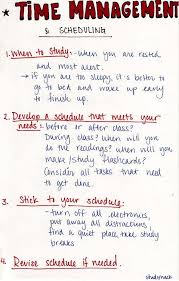 ★ TIME MANAGEMENT
& SCHEDULING
1. When to Study:- when you are rested
and most alert.
→ if you are too sleepy, it's better to
go to bed and wake up early
to finish up.
2. Develop a schedule that meets your
needs: before or after class?
During class? When will you
do the readings? When will you
make/study flashcards?
Consider all tasks that need
to get done.
3. Stick to your schedule:
- turn off all electronics,
put away all distractions,
find a quiet place, take study
breaks
4. Revise schedule if needed.
studymack